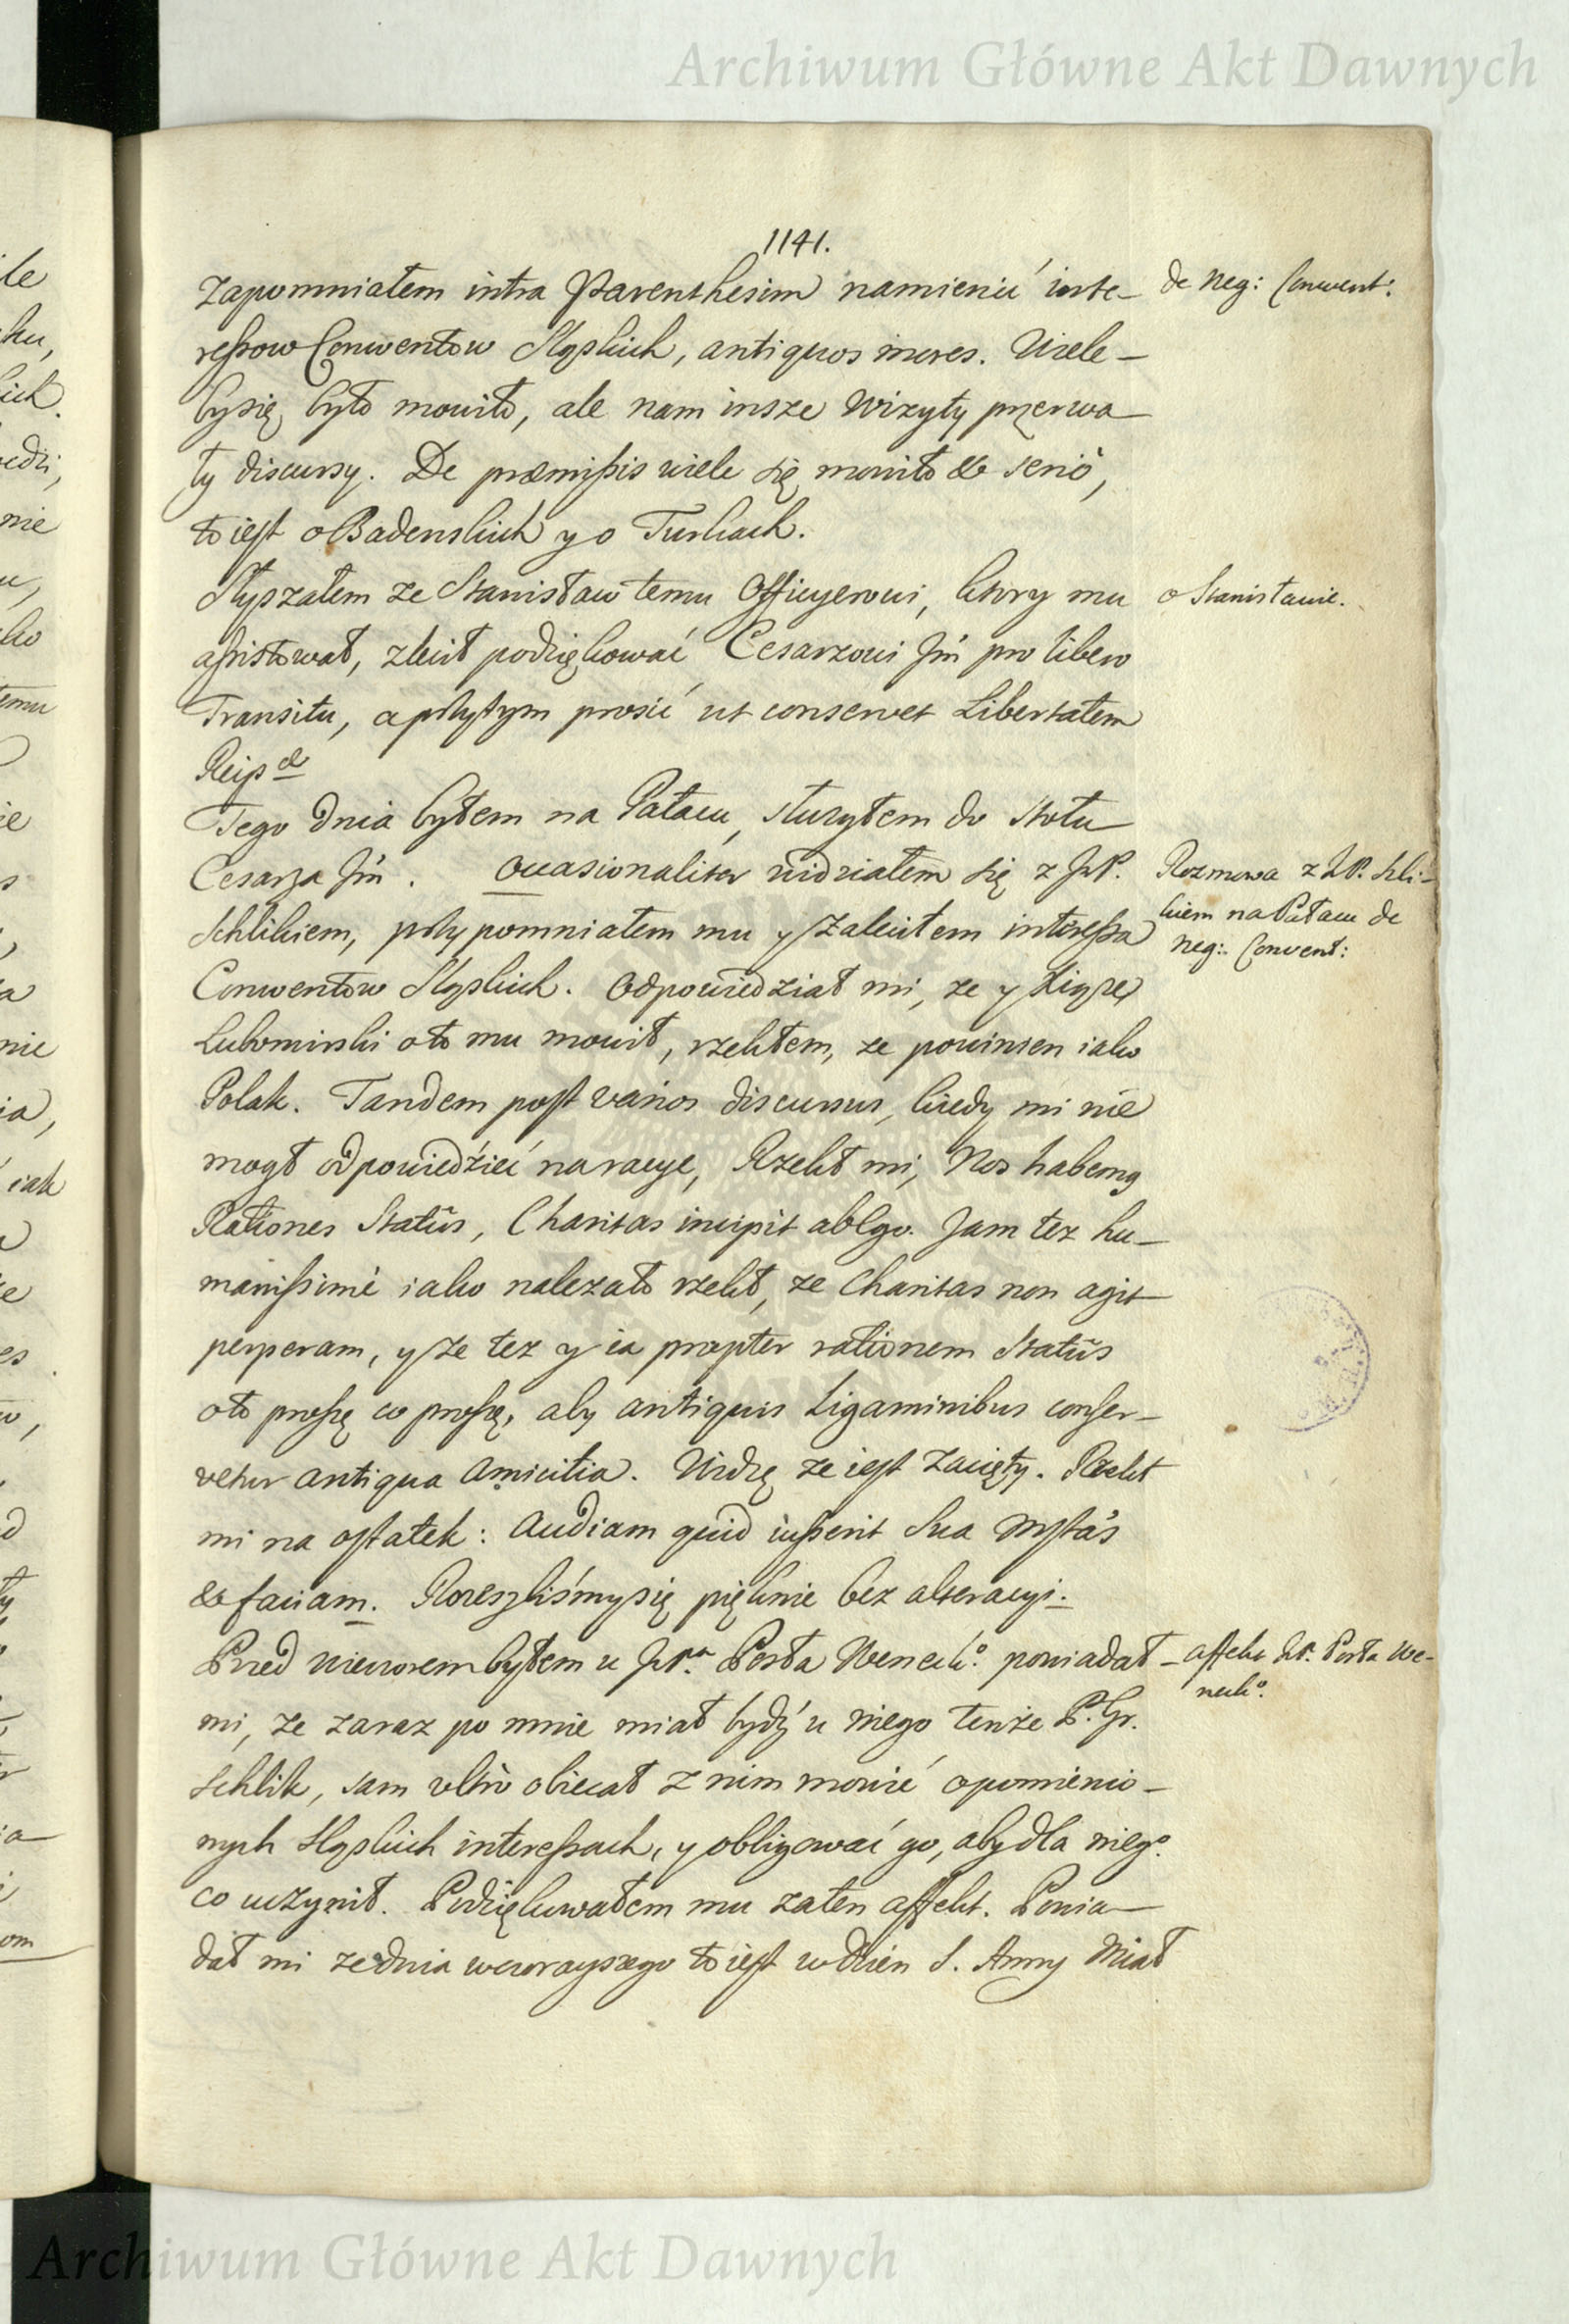 Archiwum Główne Akt Dawnych
1141.
Zapomniałem intra Parenthesim namienić inte-
de neg: Convent:
ressow Conwentow Sląskich, antiquos mores. Wiele-
bysię było mowiło, ale nam insze Wizyty przerwa-
ły discursy. De præmissis wiele się mowiło & seriò,
to iest o Badenskich y o Turkach.
Słyszałem ze Stanisław temu Officyerowi, ktory mu
o Stanisławie.
assistował, zlecił podziękować Cesarzowi Jm̃ pro libero
Transitu, a przytym prosić ut conservet Libertatem
Reip æ
Tego dnia byłem na Pałacu, służyłem do Stołu
Cesarza Jm̃. Occasionaliter widziałem się z JP.
Rozmowa z JP. Schli-
Schlikiem, przypomniałem mu y zaleciłem interessa
kiem na Pałacu de
neg: Convent:
Conwentow Sląskich. Odpowiedział mi, ze y Xiąze
Lubomirski oto mu mowił, rzekłem, ze powinien iako
Polak. Tandem post varios discursus, kiedy mi nie
mogł odpowiedzieć na racye, Rzekł mi, Nos habemg
Rationes Statûs, Charitas incipit ab Ego. Jam tez hu-
manissimè iako nalezało rzekł, ze Charitas non agit
perperam, y ze tez y ia propter rationem Statûs
oto proszę co proszę, aby antiquis Ligaminibus conser-
vetur antiqua Amicitia. Widzę ze iest zacięty. Rzekł
mi na ostatek: Audiam quid iusserit Sua Mstas
& faciam. Rozeszliśmysię pięknie bez alteracyi.
Przed wieczorem byłem u JP.ª Posła Weneck.º powiadał
affekt JP. Posła We-
neck.º
mi, ze zaraz po mnie miał bydź u niego tenże P. Gr.
Schlik, sam ultrò obiecał z nim mowić o pomienio-
nych Sląskich interessach, y obligować go, aby dla nieg.º
co uczynił. Podziękowałem mu zaten affekt. Powia-
dał mi ze dnia wczorayszego to iest w dzien S. Anny Miał
Archiwum Główne Akt Dawnych